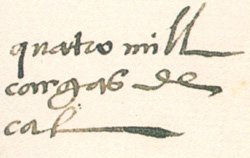 quatro mill
cargas de
cal